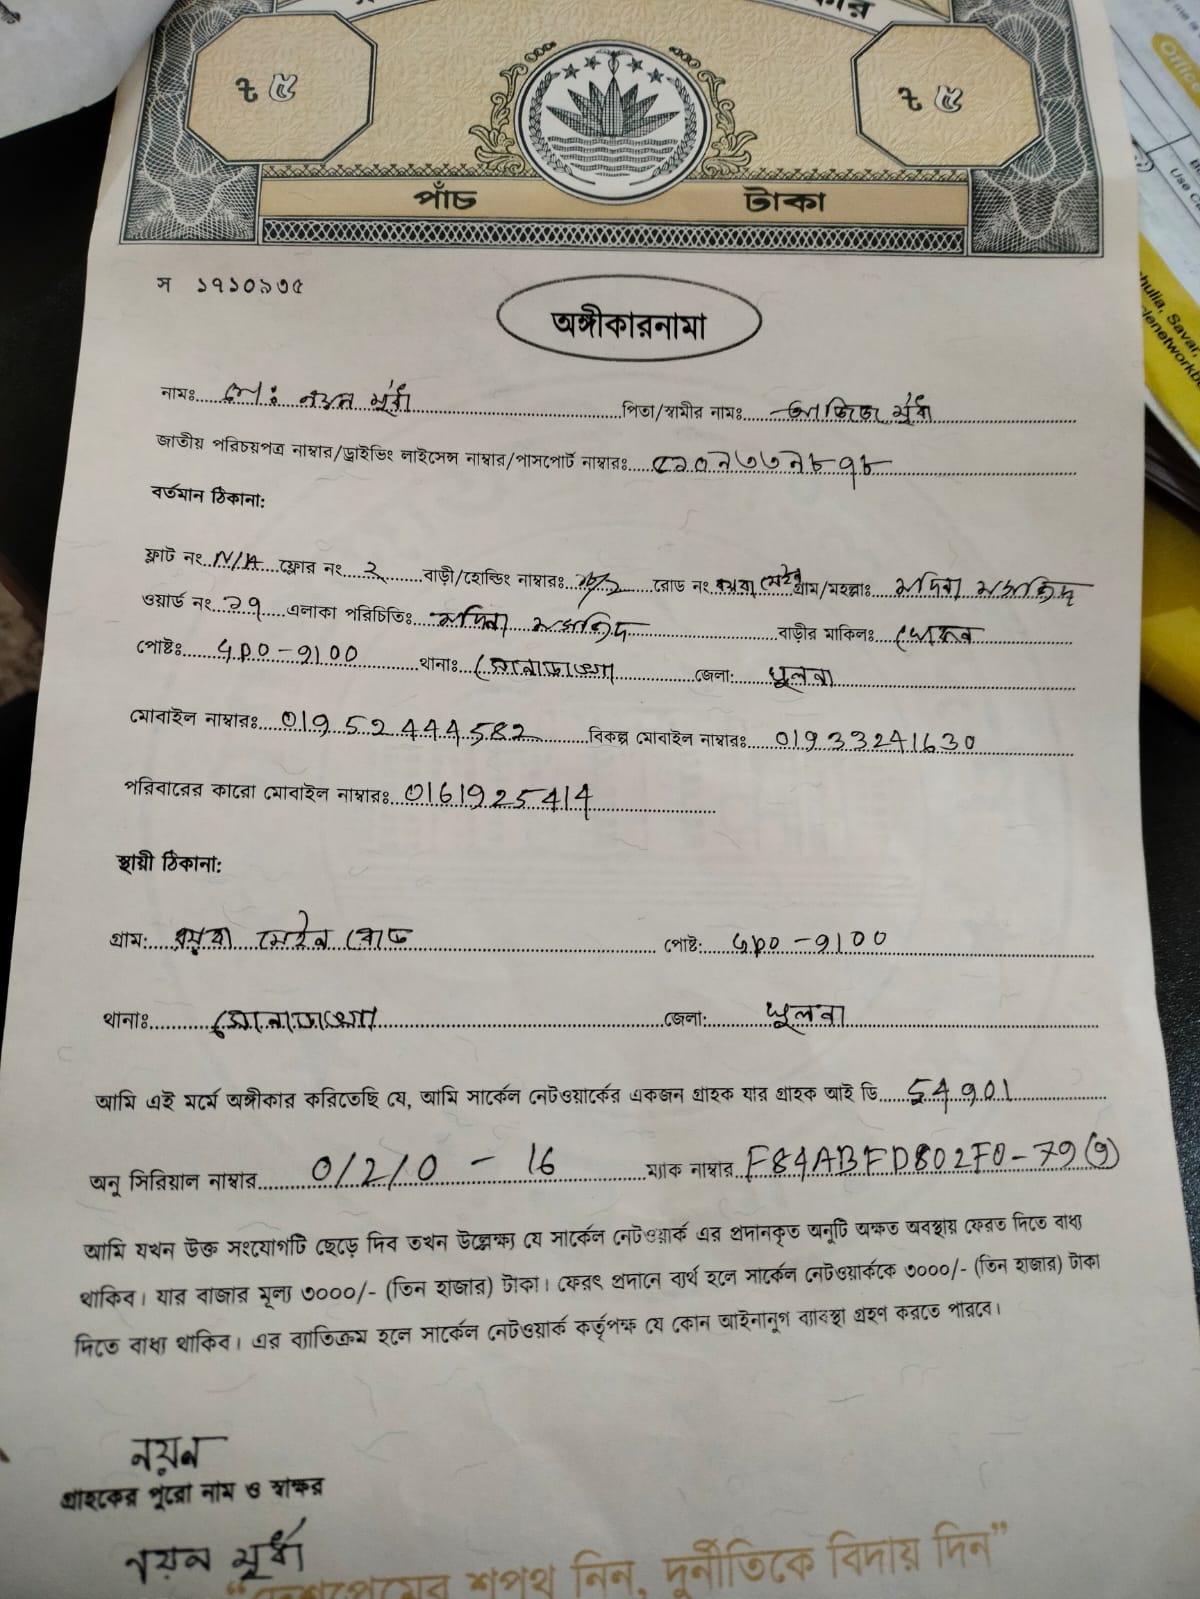 ৳ ৫ ৳ ৫
পাঁচ টাকা
স ১৭১০৯৩৫
অঙ্গীকারনামা
নামঃ মোঃ নয়ন মূর্ধা পিতা/স্বামীর নামঃ আজিজ মূর্ধা
জাতীয় পরিচয়পত্র নাম্বার/ড্রাইভিং লাইসেন্স নাম্বার/পাসপোর্ট নাম্বারঃ
বর্তমান ঠিকানা:
ফ্লাট নং N/A ফ্লোর নং ২ বাড়ী/হোল্ডিং নাম্বারঃ রোড নং বয়রা মেইন গ্রাম/মহল্লাঃ মদিনা মসজিদ
ওয়ার্ড নং ১৭ এলাকা পরিচিতিঃ মদিনা মসজিদ বাড়ীর মালিকঃ
পোষ্টঃ GPO-9100 থানাঃ সোনাডাঙ্গা জেলা: খুলনা
মোবাইল নাম্বারঃ 01952444582 বিকল্প মোবাইল নাম্বারঃ 01933241630
পরিবারের কারো মোবাইল নাম্বারঃ 0161925414
স্থায়ী ঠিকানা:
গ্রাম: বয়রা মেইন রোড পোষ্ট: GPO-9100
থানাঃ সোনাডাঙ্গা জেলা: খুলনা
আমি এই মর্মে অঙ্গীকার করিতেছি যে, আমি সার্কেল নেটওয়ার্কের একজন গ্রাহক যার গ্রাহক আই ডি 54901
অনু সিরিয়াল নাম্বার 0/2/0 - 16 ম্যাক নাম্বার F84ABFD802F0-79(9)
আমি যখন উক্ত সংযোগটি ছেড়ে দিব তখন উল্লেক্ষ্য যে সার্কেল নেটওয়ার্ক এর প্রদানকৃত অনুটি অক্ষত অবস্থায় ফেরত দিতে বাধ্য
থাকিব। যার বাজার মূল্য ৩০০০/- (তিন হাজার) টাকা। ফেরৎ প্রদানে ব্যর্থ হলে সার্কেল নেটওয়ার্ককে ৩০০০/- (তিন হাজার) টাকা
দিতে বাধ্য থাকিব। এর ব্যাতিক্রম হলে সার্কেল নেটওয়ার্ক কর্তৃপক্ষ যে কোন আইনানুগ ব্যাবস্থা গ্রহণ করতে পারবে।
নয়ন
গ্রাহকের পুরো নাম ও স্বাক্ষর
নয়ন মূর্ধা
“দেশপ্রেমের শপথ নিন, দুর্নীতিকে বিদায় দিন”